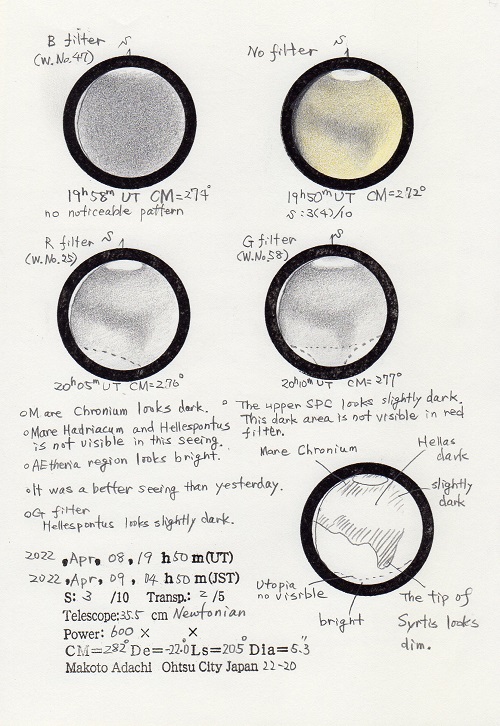 B filter
(W.No.47)
S
No filter
S
19h58m UT CM=274°
no noticeable pattern
19h50m UT CM=272°
S:3(4)/10
R filter
(W.No.25)
S
G filter
(W.No.58)
S
20h05m UT CM=276°
20h10m UT CM=277°
○Mare Chronium looks dark.
○Mare Hadriacum and Hellespontus
is not visible in this seeing.
○AEtheria region looks bright.
○It was a better seeing than yesterday.
○G filter
Hellespontus looks slightly dark.
○The upper SPC looks slightly dark.
This dark area is not visible in red
filter.
Mare Chronium
Hellas
dark
slightly
dark
Utopia
no visible
bright
The tip of
Syrtis looks
dim.
2022 ,Apr, 08, 19 h 50 m(UT)
2022 ,Apr, 09, 04 h 50 m(JST)
S: 3 /10 Transp.: 2 /5
Telescope:35.5 cm Newtonian
Power: 600 × ×
CM=282° De=-22.0° Ls=205 Dia=5.3"
Makoto Adachi Ohtsu City Japan 22-20